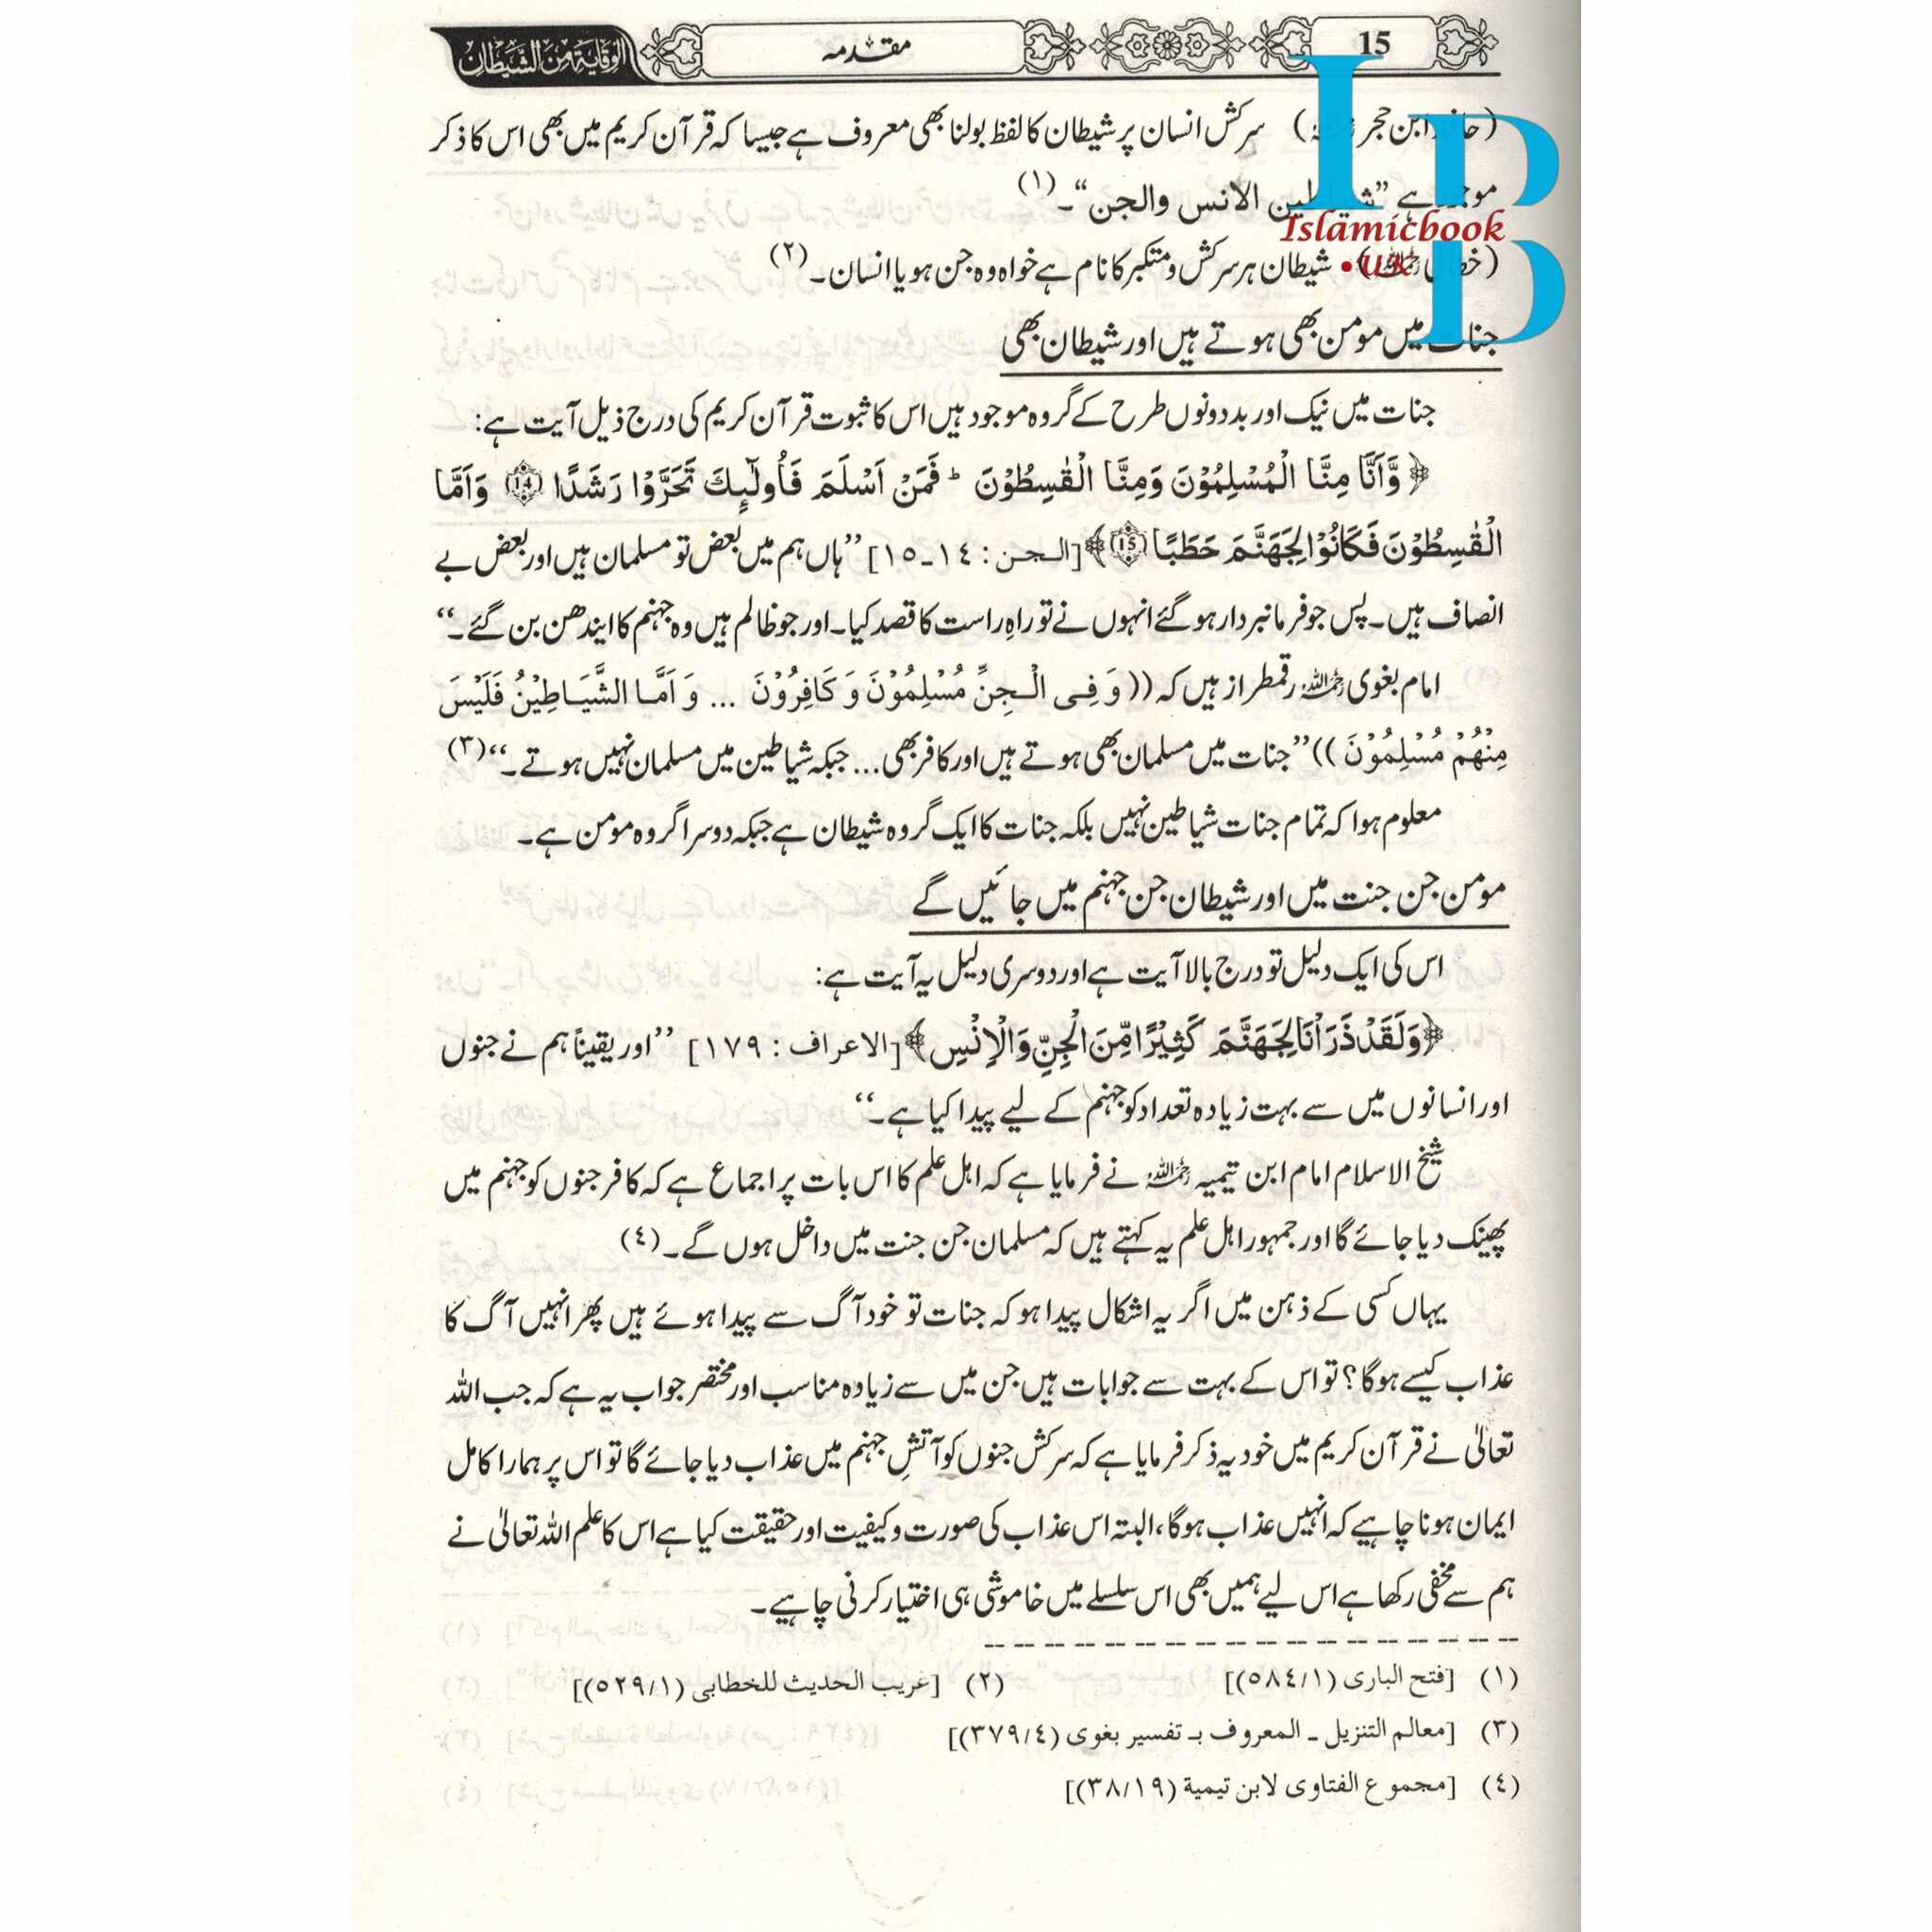 15
مقدمہ
الوقایة من الشیطان
ابن حجر) سرکش انسان پر شیطان کا لفظ بولنا بھی معروف ہے جیسا کہ قرآن کریم میں بھی اس کا ذکر
ہے ”شیاطین الانس والجن“۔(۱)
شیطان ہر سرکش و متکبر کا نام ہے خواہ وہ جن ہو یا انسان۔(۲)
Islamicbook
.uk
جنات میں مومن بھی ہوتے ہیں اور شیطان بھی
جنات میں نیک اور بد دونوں طرح کے گروہ موجود ہیں اس کا ثبوت قرآن کریم کی درج ذیل آیت ہے:
﴿وَّاَنَّا مِنَّا الْمُسْلِمُوْنَ وَمِنَّا الْقٰسِطُوْنَ ؕ فَمَنْ اَسْلَمَ فَاُولٰٓىِٕكَ تَحَرَّوْا رَشَدًا (14) وَاَمَّا
الْقٰسِطُوْنَ فَكَانُوْا لِجَهَنَّمَ حَطَبًا (15)﴾ [الجن : ١٤۔١٥] ”ہاں ہم میں بعض تو مسلمان ہیں اور بعض بے
انصاف ہیں۔ پس جو فرمانبردار ہو گئے انہوں نے تو راہِ راست کا قصد کیا۔ اور جو ظالم ہیں وہ جہنم کا ایندھن بن گئے۔“
امام بغوی رحمہ اللہ رقمطراز ہیں کہ ((وَ فِی الْجِنِّ مُسْلِمُوْنَ وَ كَافِرُوْنَ ... وَ اَمَّا الشَّيَاطِيْنُ فَلَيْسَ
مِنْهُمْ مُسْلِمُوْنَ)) ”جنات میں مسلمان بھی ہوتے ہیں اور کافر بھی... جبکہ شیاطین میں مسلمان نہیں ہوتے۔“(۳)
معلوم ہوا کہ تمام جنات شیاطین نہیں بلکہ جنات کا ایک گروہ شیطان ہے جبکہ دوسرا گروہ مومن ہے۔
مومن جن جنت میں اور شیطان جن جہنم میں جائیں گے
اس کی ایک دلیل تو درج بالا آیت ہے اور دوسری دلیل یہ آیت ہے:
﴿وَلَقَدْ ذَرَاْنَا لِجَهَنَّمَ كَثِيْرًا مِّنَ الْجِنِّ وَالْاِنْسِ﴾ [الاعراف : ١٧٩] ”اور یقیناً ہم نے جنوں
اور انسانوں میں سے بہت زیادہ تعداد کو جہنم کے لیے پیدا کیا ہے۔“
شیخ الاسلام امام ابن تیمیہ رحمہ اللہ نے فرمایا ہے کہ اہل علم کا اس بات پر اجماع ہے کہ کافر جنوں کو جہنم میں
پھینک دیا جائے گا اور جمہور اہل علم یہ کہتے ہیں کہ مسلمان جن جنت میں داخل ہوں گے۔(٤)
یہاں کسی کے ذہن میں اگر یہ اشکال پیدا ہو کہ جنات تو خود آگ سے پیدا ہوئے ہیں پھر انہیں آگ کا
عذاب کیسے ہوگا؟ تو اس کے بہت سے جوابات ہیں جن میں سے زیادہ مناسب اور مختصر جواب یہ ہے کہ جب اللہ
تعالیٰ نے قرآن کریم میں خود یہ ذکر فرمایا ہے کہ سرکش جنوں کو آتشِ جہنم میں عذاب دیا جائے گا تو اس پر ہمارا کامل
ایمان ہونا چاہیے کہ انہیں عذاب ہوگا، البتہ اس عذاب کی صورت و کیفیت اور حقیقت کیا ہے اس کا علم اللہ تعالیٰ نے
ہم سے مخفی رکھا ہے اس لیے ہمیں بھی اس سلسلے میں خاموشی ہی اختیار کرنی چاہیے۔
(١) [فتح الباری (٥٨٤/١)] (٢) [غریب الحدیث للخطابی (٥٢٩/١)]
(٣) [معالم التنزیل ۔ المعروف بـ تفسیر بغوی (٣٧٩/٤)]
(٤) [مجموع الفتاوی لابن تیمیة (٣٨/١٩)]